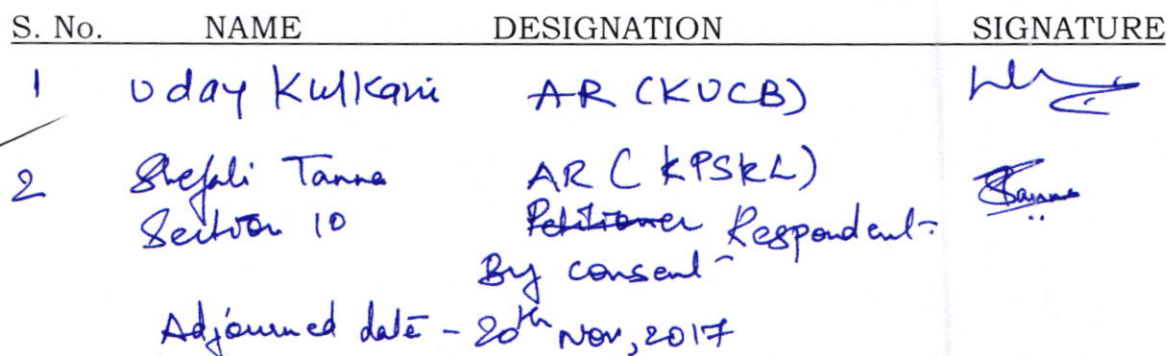 S. No. NAME DESIGNATION SIGNATURE
1 Uday Kulkani AR (KUCB)
2 Shefali Tanna AR (KPSKL)
Section 10 Petitioner Respondent-
By consent-
Adjourned date - 20th Nov, 2017